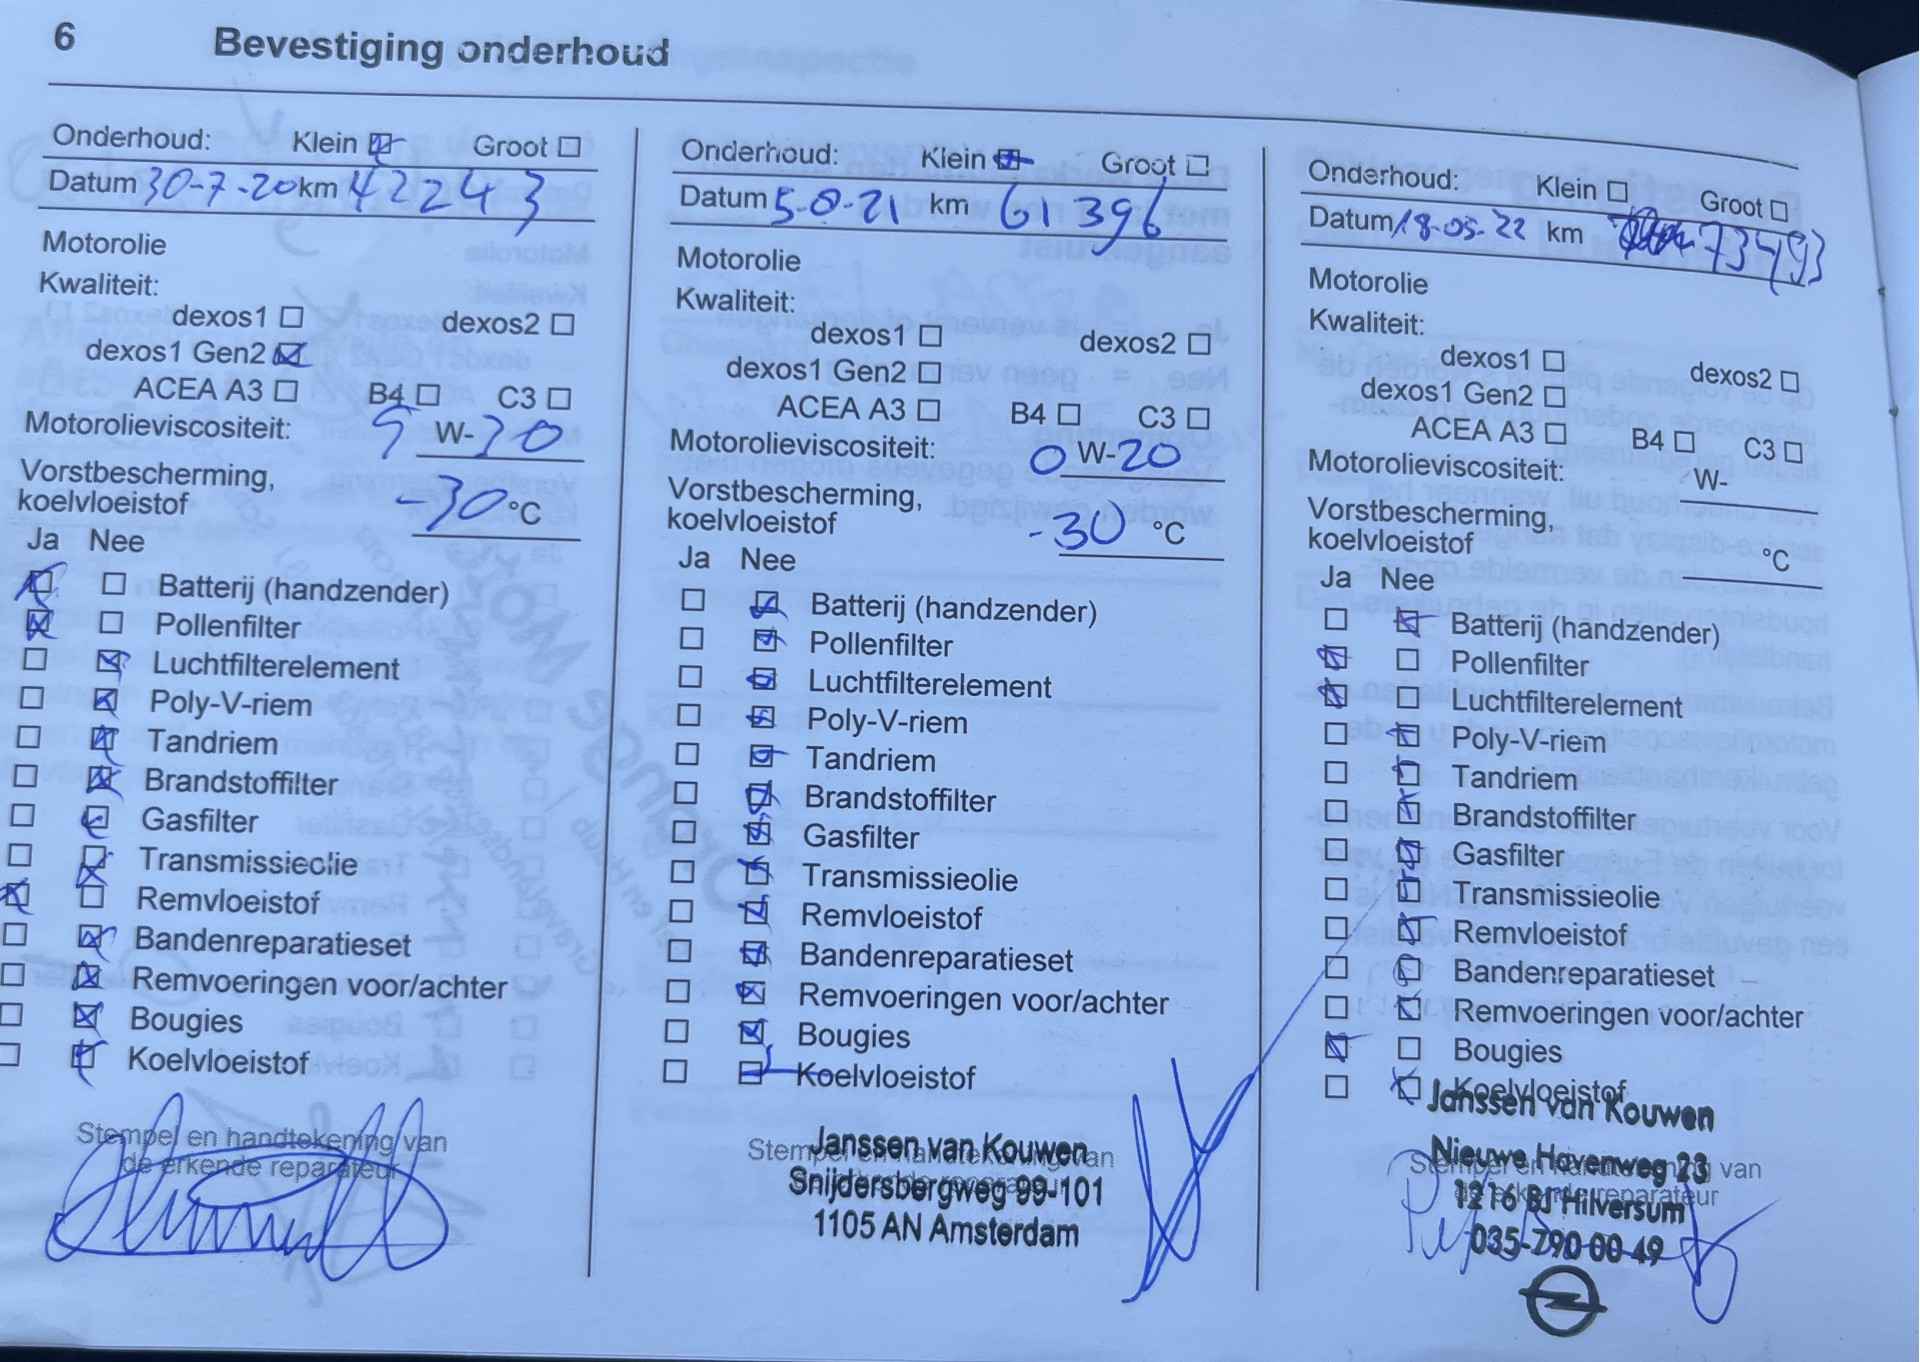 6 Bevestiging onderhoud
Onderhoud: Klein Groot
Datum 30-7-20 km 42243
Motorolie
Kwaliteit:
dexos1 dexos2
dexos1 Gen2
ACEA A3 B4 C3
Motorolieviscositeit: 5 W-30
Vorstbescherming,
koelvloeistof -30 °C
Ja Nee
Batterij (handzender)
Pollenfilter
Luchtfilterelement
Poly-V-riem
Tandriem
Brandstoffilter
Gasfilter
Transmissieolie
Remvloeistof
Bandenreparatieset
Remvoeringen voor/achter
Bougies
Koelvloeistof
Stempel en handtekening van
de erkende reparateur
Onderhoud: Klein Groot
Datum 5-8-21 km 61396
Motorolie
Kwaliteit:
dexos1 dexos2
dexos1 Gen2
ACEA A3 B4 C3
Motorolieviscositeit: 0 W-20
Vorstbescherming,
koelvloeistof -30 °C
Ja Nee
Batterij (handzender)
Pollenfilter
Luchtfilterelement
Poly-V-riem
Tandriem
Brandstoffilter
Gasfilter
Transmissieolie
Remvloeistof
Bandenreparatieset
Remvoeringen voor/achter
Bougies
Koelvloeistof
Stempel en handtekening van
de erkende reparateur
Janssen van Kouwen
Snijdersbergweg 99-101
1105 AN Amsterdam
Onderhoud: Klein Groot
Datum 18-05-22 km 73493
Motorolie
Kwaliteit:
dexos1 dexos2
dexos1 Gen2
ACEA A3 B4 C3
Motorolieviscositeit: W-
Vorstbescherming,
koelvloeistof °C
Ja Nee
Batterij (handzender)
Pollenfilter
Luchtfilterelement
Poly-V-riem
Tandriem
Brandstoffilter
Gasfilter
Transmissieolie
Remvloeistof
Bandenreparatieset
Remvoeringen voor/achter
Bougies
Koelvloeistof
Stempel en handtekening van
de erkende reparateur
Janssen van Kouwen
Nieuwe Havenweg 23
1216 BJ Hilversum
035-790 00 49